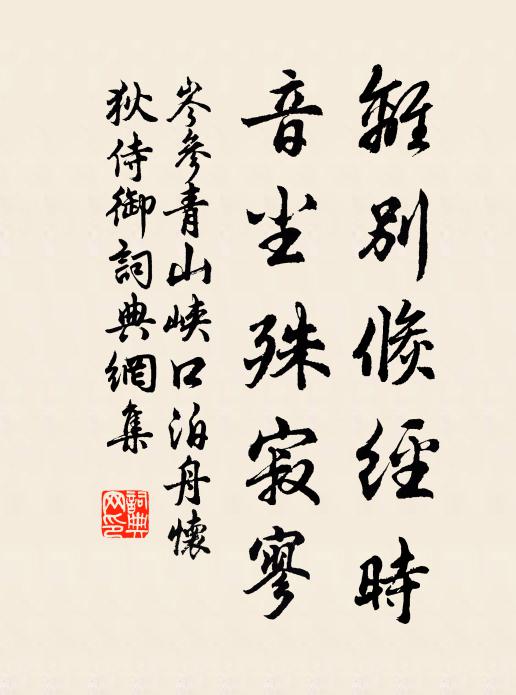 離別倐經時
音尘殊寂寥
岑參青山峽口泊舟懷
狄侍御詞典網集
詞典
网印